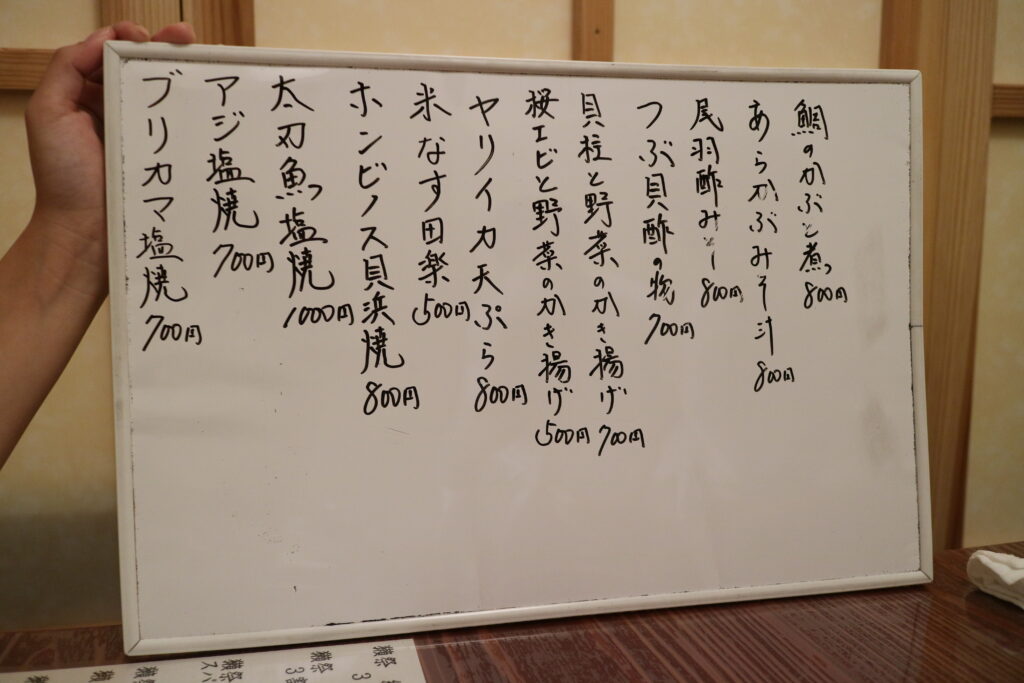 鯛のかぶと煮 800円
あらかぶみそ汁 800円
尾羽酢みそ 800円
つぶ貝酢の物 700円
貝柱と野菜のかき揚げ 700円
桜エビと野菜のかき揚げ 500円
ヤリイカ天ぷら 800円
米なす田楽 500円
ホンビノス貝浜焼 800円
太刀魚塩焼 1000円
アジ塩焼 700円
ブリカマ塩焼 700円
獺祭 3
獺祭 3割
獺祭 スパ
獺祭
獺祭